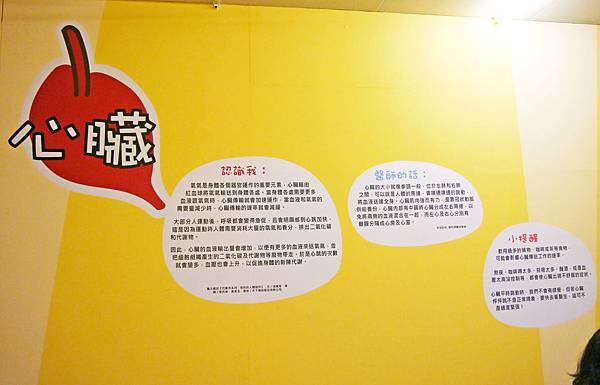 心臟
認識我：
氧氣是身體各個器官運作的重要元素，心臟藉由
紅血球將氧氣輸送到身體各處。當身體各處需要更多
血液跟氧氣時，心臟傳輸就會加速運作，當血液和氧氣的
需要量減少時，心臟傳輸的速率就會減緩。
大部分人運動後，呼吸都會變得急促，且會明顯感到心跳加快，
這是因為運動時人體需要消耗大量的氧氣和養分，排出二氧化碳
和代謝物。
因此，心臟的血液輸出量會增加，以便有更多的血液來送氧氣，並
把細胞組織產生的二氧化碳及代謝物等廢物帶走，於是心跳的次數
就會變多，血壓也會上升，以促進身體的新陳代謝。
醫師的話：
心臟的大小就像拳頭一般，位於左肺和右肺
之間，可以說是人體的馬達，會規律跳運的跳動，
將血液送達全身。心臟肌肉強而有力，是靠冠狀動脈
供給養分，心臟內部有中隔將心臟分成左右兩邊，以
免將兩側的血液混合在一起，而左心及右心分別有
瓣膜分隔成心房及心室。
小提醒
飲用過多的藥物、咖啡或茶等食物，
可能會影響心臟傳送工作的速率。
熬夜、咖啡喝太多、菸吸太多、酗酒，或是血
壓太高沒控制等，都會使心臟出現不舒服的症狀。
心臟平時跳動時，我們不會有感覺，但若心臟
怦怦跳不是正常現象，要快去看醫生，這可不
是過度緊張！